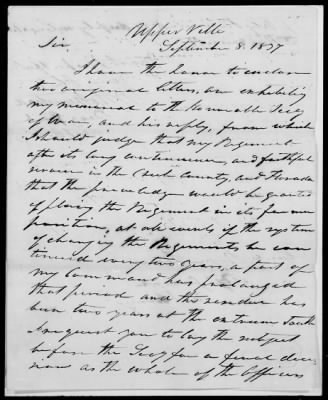 Upper Ville
September 8. 1837
Sir,
I have the honor to enclose
two original letters, one exhibiting
my memorial to the Honorable Secy
of War, and his reply, from which
I should judge that my Regiment
after its long continuance, and faithful
service in the Creek County, and Florida
that the priviledge would be granted
of placing the Regiment in its former
position, at all events if the system
of changing the Regiments be con
tinued every two years, a part of
my Command has prolonged
that period and the residue has
been two years at the extreme South
I request you to lay the subject
before the Secy for a final deci
sion as the whole of the Officers